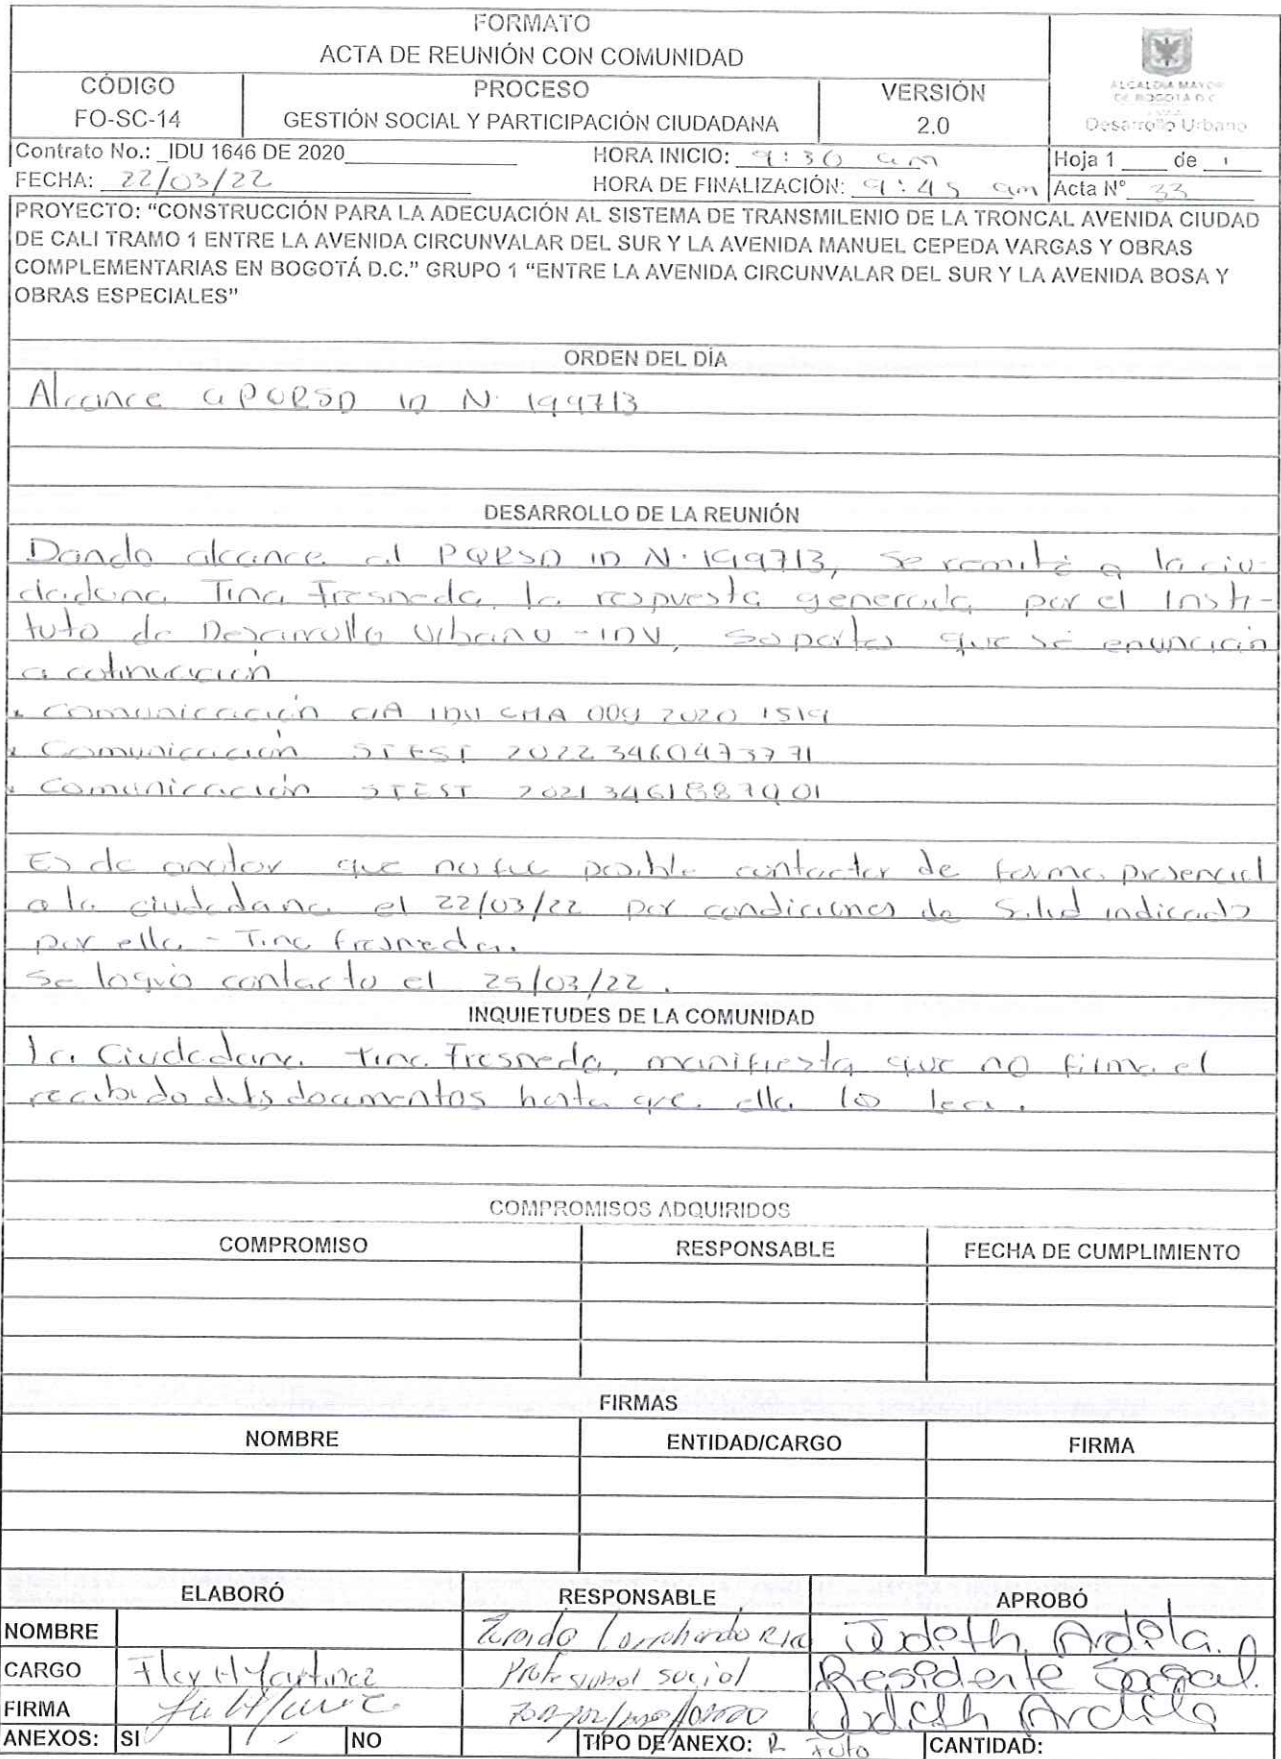 FORMATO
ACTA DE REUNIÓN CON COMUNIDAD
CÓDIGO
FO-SC-14
PROCESO
GESTIÓN SOCIAL Y PARTICIPACIÓN CIUDADANA
VERSIÓN
2.0
ALCALDIA MAYOR
DE BOGOTA D.C.
Desarrollo Urbano
Contrato No.: _IDU 1646 DE 2020
HORA INICIO: 9:30 am
Hoja 1 ____ de 1
FECHA: 22/03/22
HORA DE FINALIZACIÓN: 9:45 am
Acta N° 33
PROYECTO: “CONSTRUCCIÓN PARA LA ADECUACIÓN AL SISTEMA DE TRANSMILENIO DE LA TRONCAL AVENIDA CIUDAD
DE CALI TRAMO 1 ENTRE LA AVENIDA CIRCUNVALAR DEL SUR Y LA AVENIDA MANUEL CEPEDA VARGAS Y OBRAS
COMPLEMENTARIAS EN BOGOTÁ D.C.” GRUPO 1 “ENTRE LA AVENIDA CIRCUNVALAR DEL SUR Y LA AVENIDA BOSA Y
OBRAS ESPECIALES”
ORDEN DEL DÍA
Alcance a PQRSD ID N. 199713
DESARROLLO DE LA REUNIÓN
Dando alcance al PQRSD ID N. 199713, se remite a la ciu-
dadana Tina Fresneda, la respuesta generada por el Insti-
tuto de Desarrollo Urbano - IDU, soportes que se enuncian
a cotinuación
. Comunicación CIA IDU CMA 009 2020 1519
. Comunicación STEST 20223460473771
. Comunicación STEST 20213461887901
Es de anotar que no fue posible contactar de forma presencial
a la ciudadana el 22/03/22 por condiciones de Salud indicado
por ella - Tina Fresneda.
Se logró contacto el 25/03/22.
INQUIETUDES DE LA COMUNIDAD
La Ciudadana Tina Fresneda, manifiesta que no firma el
recibido de los documentos hasta que ella los lea.
COMPROMISOS ADQUIRIDOS
COMPROMISO
RESPONSABLE
FECHA DE CUMPLIMIENTO
FIRMAS
NOMBRE
ENTIDAD/CARGO
FIRMA
ELABORÓ
RESPONSABLE
APROBÓ
NOMBRE
Judith Ardila.
CARGO
Flor H Martinez
Profesional social
Residente Social.
FIRMA
Judith Ardila
ANEXOS:
SI
NO
TIPO DE ANEXO: R Foto
CANTIDAD: